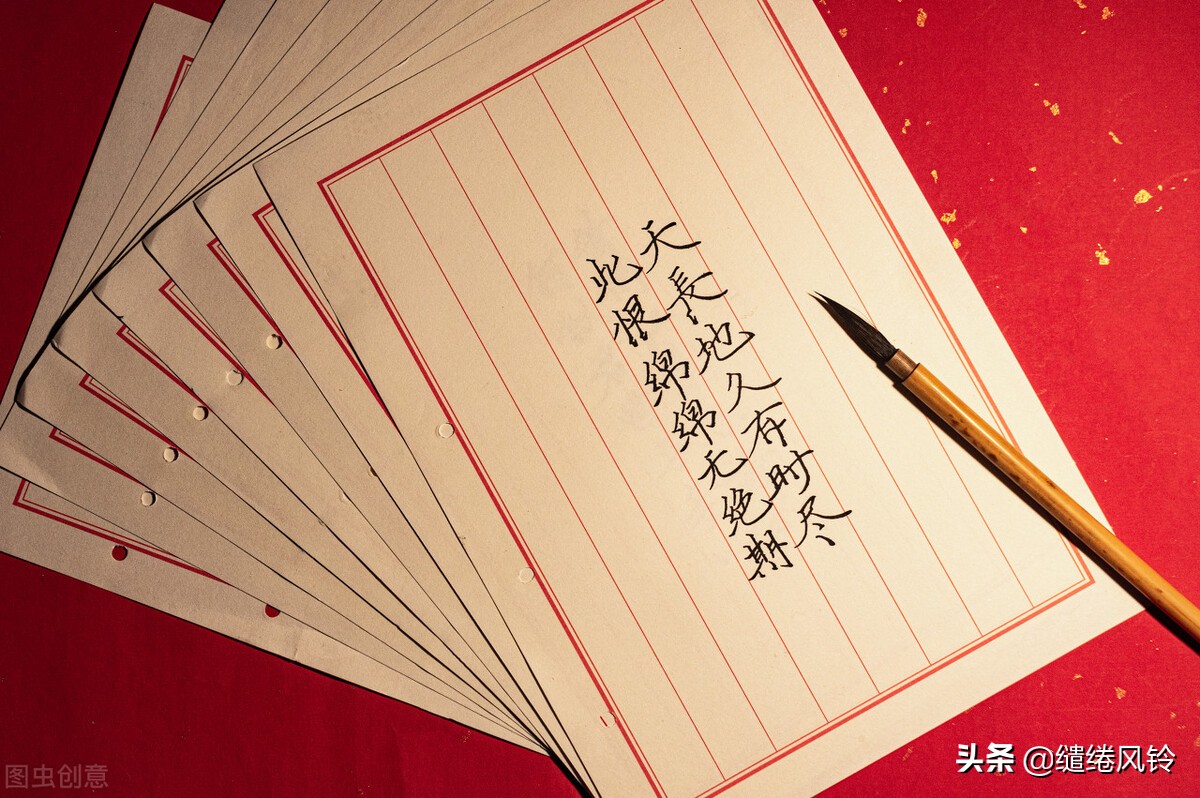 天長地久有时尽
此恨綿綿无绝期
图虫创意
头条 @缱绻风铃